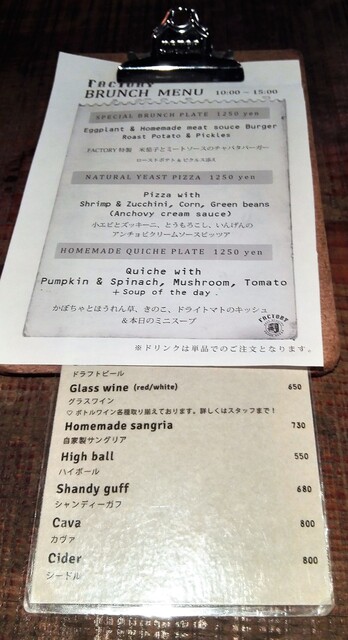 FACTORY
BRUNCH MENU 10:00 - 15:00
SPECIAL BRUNCH PLATE 1250 yen
Eggplant & Homemade meat souce Burger
Roast Potato & Pickles
FACTORY 特製 米茄子とミートソースのチャバタバーガー
ローストポテト & ピクルス添え
NATURAL YEAST PIZZA 1250 yen
Pizza with
Shrimp & Zucchini, Corn, Green beans
(Anchovy cream sauce)
小エビとズッキーニ、とうもろこし、いんげんの
アンチョビクリームソースピッツァ
HOMEMADE QUICHE PLATE 1250 yen
Quiche with
Pumpkin & Spinach, Mushroom, Tomato
+ Soup of the day.
かぼちゃとほうれん草、きのこ、ドライトマトのキッシュ
&本日のミニスープ
FACTORY
※ドリンクは単品でのご注文となります。
ドラフトビール
Glass wine (red/white) 650
グラスワイン
♡ ボトルワイン各種取り揃えております。詳しくはスタッフまで!
Homemade sangria 730
自家製サングリア
High ball 550
ハイボール
Shandy guff 680
シャンディーガフ
Cava 800
カヴァ
Cider 800
シードル